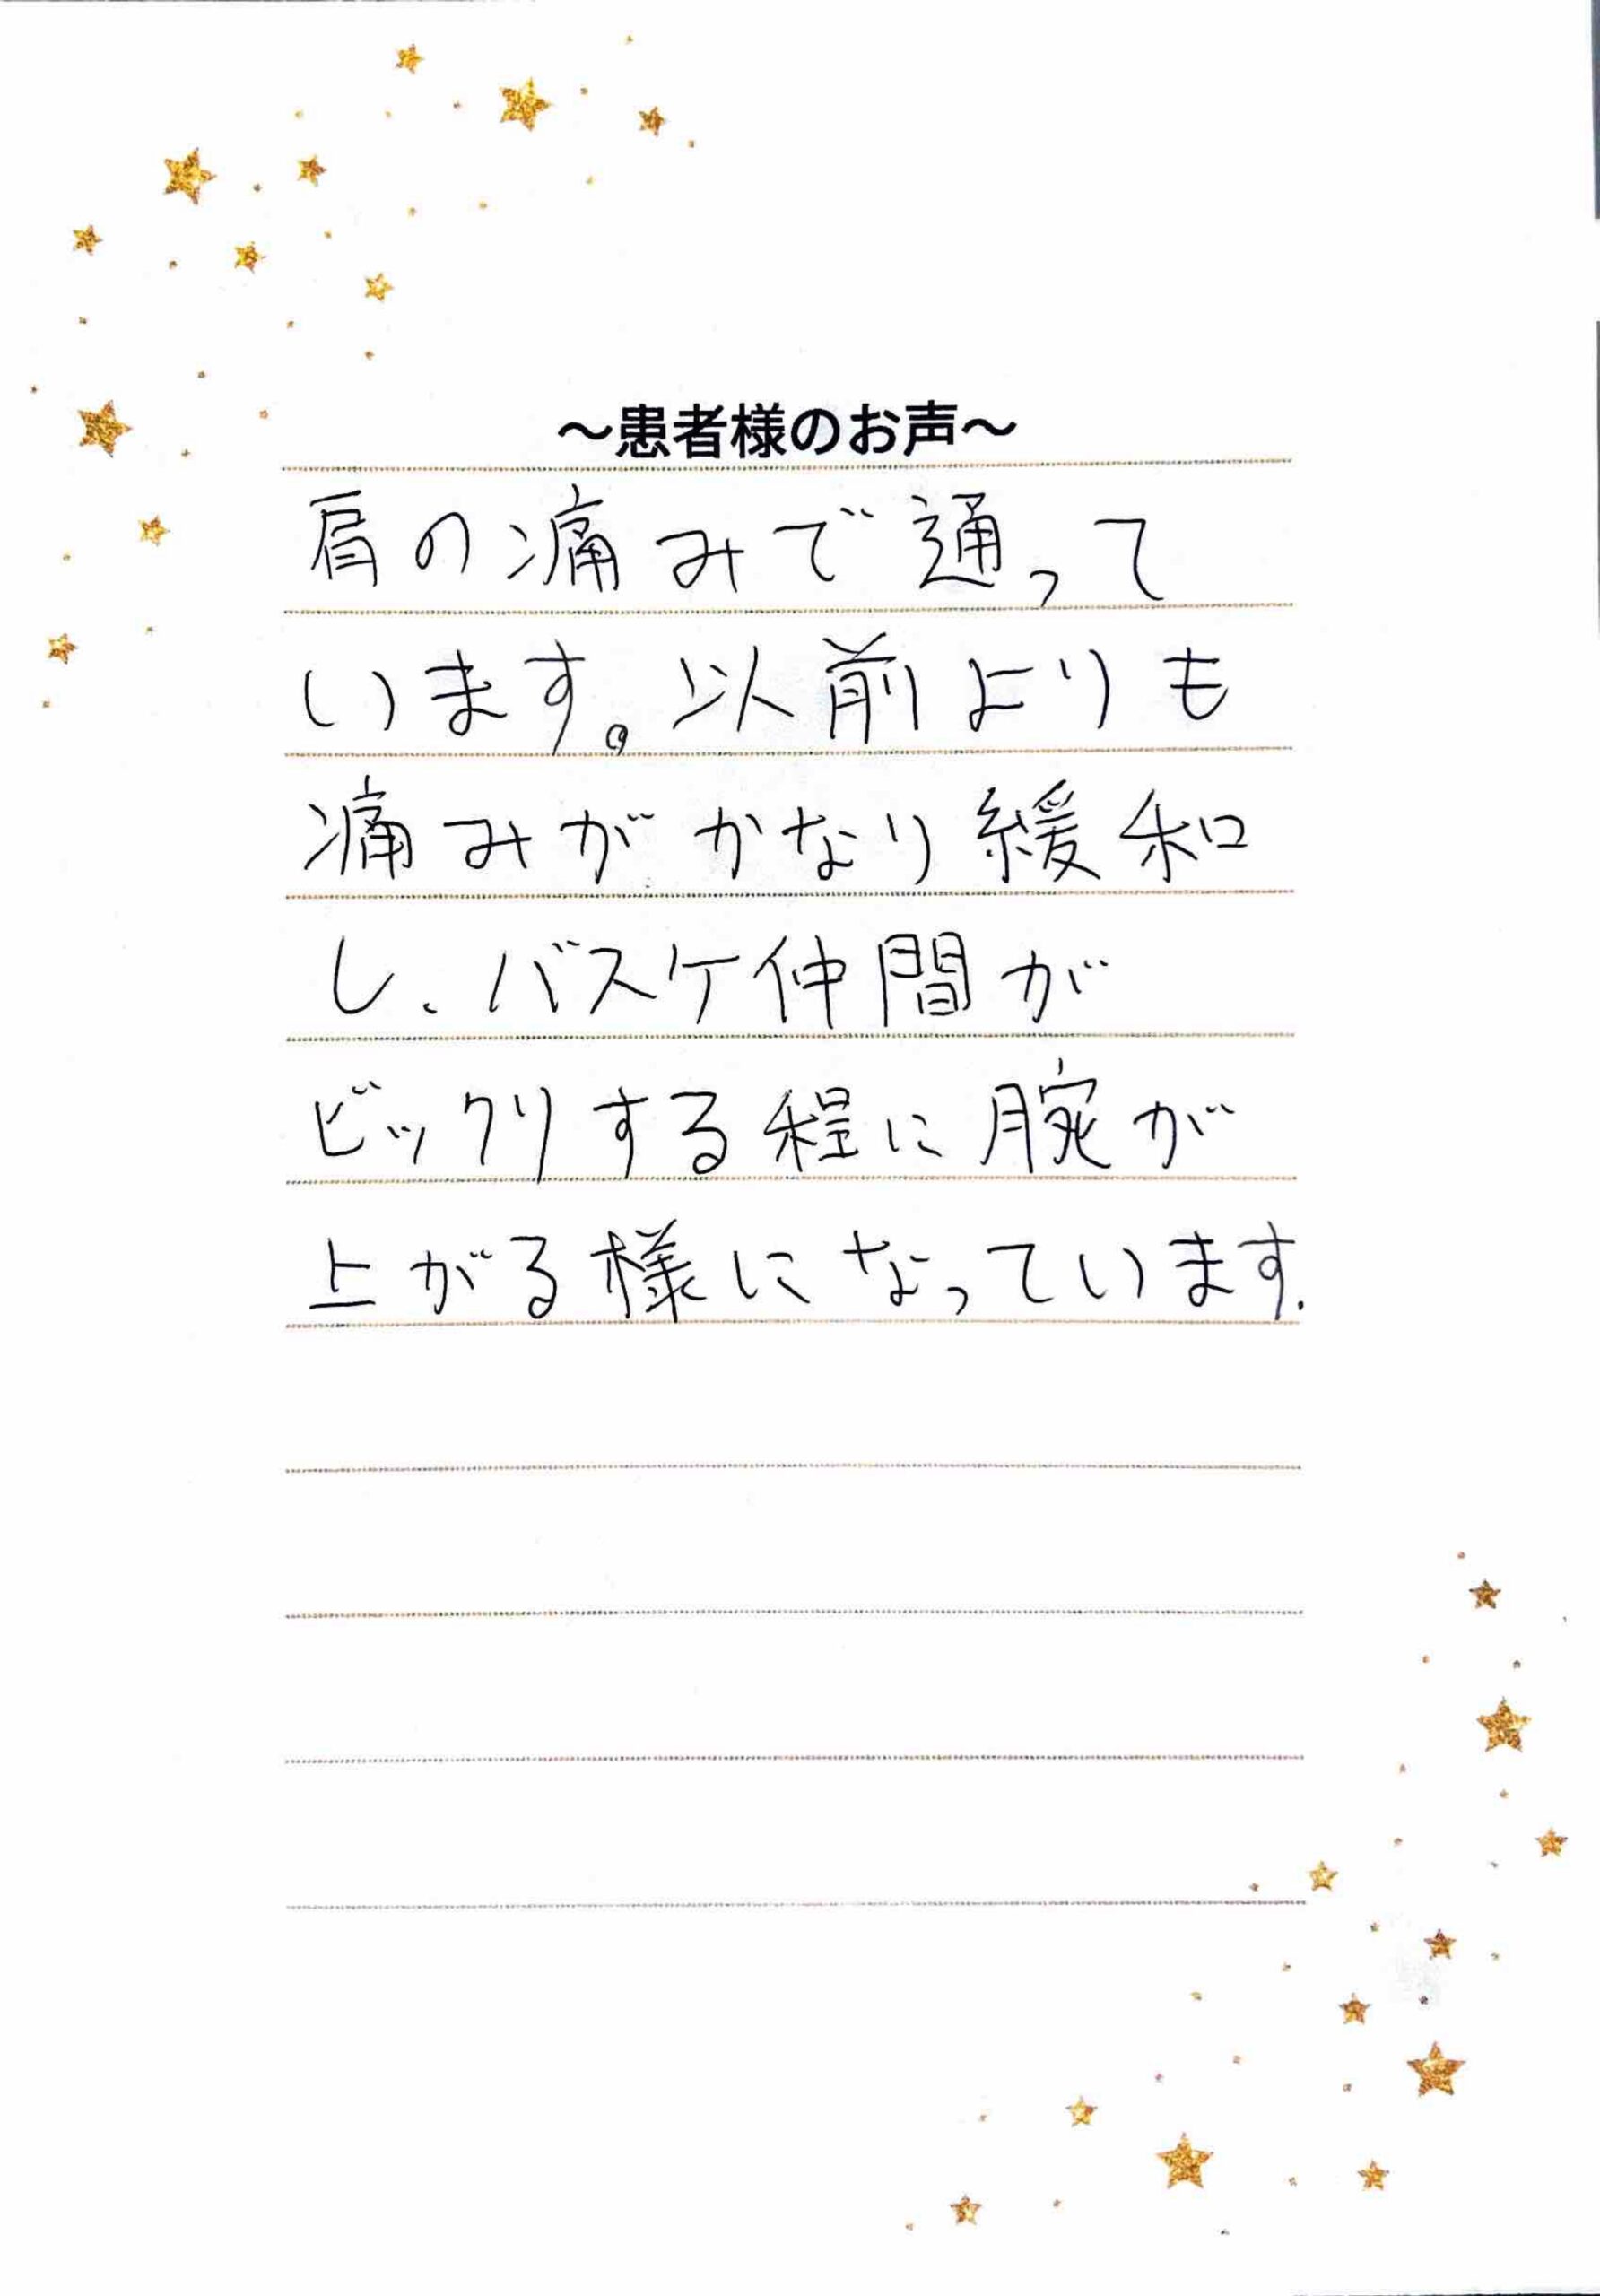 ～患者様のお声～
肩の痛みで通って
います。以前よりも
痛みがかなり緩和
し、バスケ仲間が
ビックリする程に腕が
上がる様になっています.